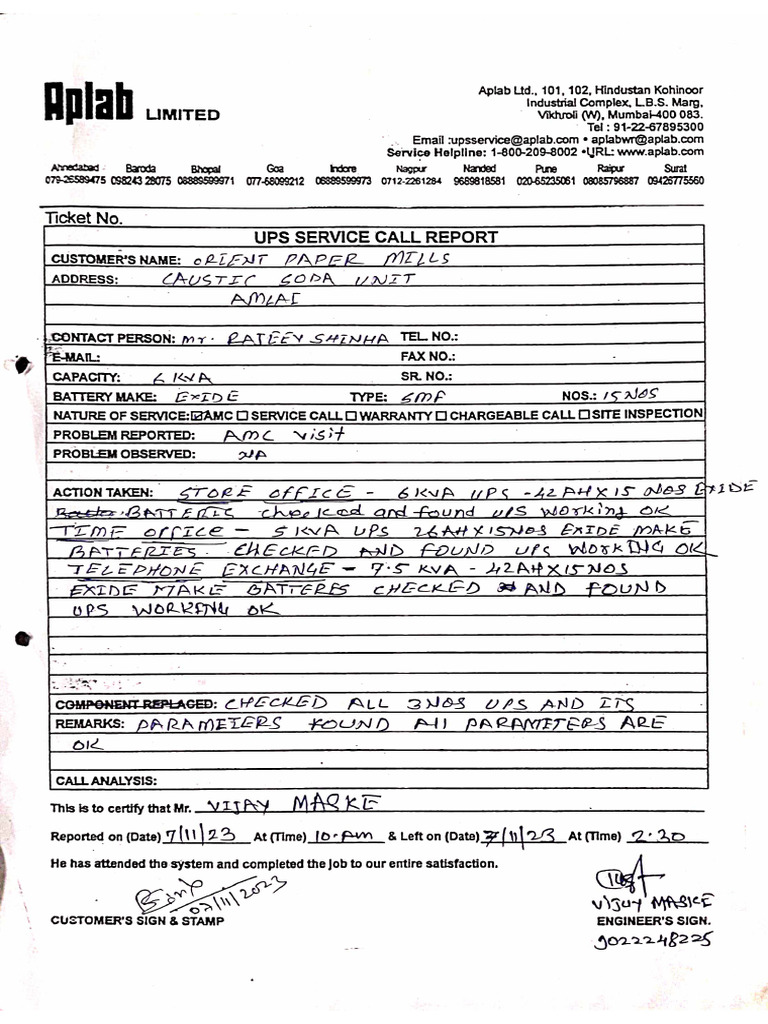 Aplab LIMITED
Aplab Ltd., 101, 102, Hindustan Kohinoor
Industrial Complex, L.B.S. Marg,
Vikhroli (W), Mumbai-400 083.
Tel : 91-22-67895300
Email :upsservice@aplab.com • aplabwr@aplab.com
Service Helpline: 1-800-209-8002 •URL: www.aplab.com
Ahmedabad Baroda Bhopal Goa Indore Nagpur Nanded Pune Raipur Surat
079-26589475 098243 28075 08889599971 077-68099212 08889599973 0712-2261284 9689818581 020-65235061 08085796887 09426775560
Ticket No.
UPS SERVICE CALL REPORT
CUSTOMER'S NAME: ORIENT PAPER MILLS
ADDRESS: CAUSTIC SODA UNIT
AMLAI
CONTACT PERSON: Mr. RAJEEV SHINHA TEL. NO.:
E-MAIL: FAX NO.:
CAPACITY: 6 KVA SR. NO.:
BATTERY MAKE: EXIDE TYPE: SMF NOS.: 15 NOS
NATURE OF SERVICE: ☑ AMC ☐ SERVICE CALL ☐ WARRANTY ☐ CHARGEABLE CALL ☐ SITE INSPECTION
PROBLEM REPORTED: AMC visit
PROBLEM OBSERVED: NA
ACTION TAKEN: STORE OFFICE - 6KVA UPS -42AHX15 NOS EXIDE
BATTERIS checked and found UPS working OK
TIME OFFICE - 5 KVA UPS 26AHX15NOS EXIDE MAKE
BATTERIES. CHECKED AND FOUND UPS WORKING OK
TELEPHONE EXCHANGE - 7.5 KVA - 42AHX15NOS
EXIDE MAKE BATTERES CHECKED AND FOUND
UPS WORKING OK
COMPONENT REPLACED: CHECKED ALL 3NOS UPS AND ITS
REMARKS: PARAMETERS FOUND All PARAMETERS ARE
OK
CALL ANALYSIS:
This is to certify that Mr. VIJAY MASKE
Reported on (Date) 7/11/23 At (Time) 10-Am & Left on (Date) 7/11/23 At (Time) 2:30
He has attended the system and completed the job to our entire satisfaction.
07/11/2023
VIJAY MASKE
CUSTOMER'S SIGN & STAMP ENGINEER'S SIGN.
9022248225